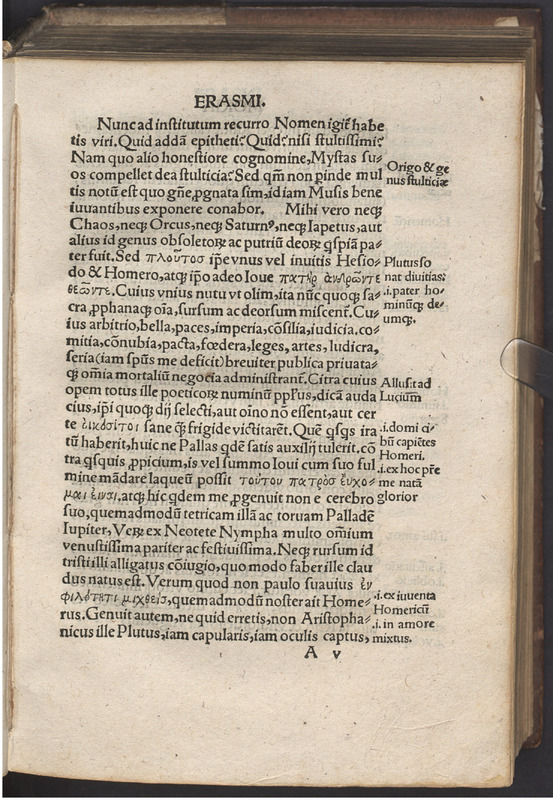 ERASMI.
Nunc ad institutum recurro Nomen igit᷑ habe
tis viri. Quid addā epitheti? Quid? nisi stultissimi?
Nam quo alio honestiore cognomine, Mystas su⸗
os compellet dea stulticia? Sed qm̄ non pinde mul
tis notū est quo gn̄e, ꝓgnata sim, id iam Musis bene
iuuantibus exponere conabor. Mihi vero neqꝫ
Chaos, neqꝫ Orcus, neqꝫ Saturnꝰ, neqꝫ Iapetus, aut
alius id genus obsoletoꝝ ac putriū deoꝝ q̄spiā pa⸗
ter fuit. Sed πλοῦτοσ ip̄e vnus vel inuitis Hesio⸗
do & Homero, atqꝫ ip̄o adeo Ioue πατὴρ ἀνδρῶντε
θεῶντε. Cuius vnius nutu vt olim, ita nūc quoqꝫ sa⸗
cra, ꝓphanaqꝫ oīa, sursum ac deorsum miscent᷑. Cu⸗
ius arbitrio, bella, paces, imperia, cōsilia, iudicia. co⸗
mitia, cōnubia, pacta, fœdera, leges, artes, ludicra,
seria (iam spūs me deficit) breuiter publica priuata⸗
qꝫ omīa mortaliū negocia administrant᷑. Citra cuius
opem totus ille poeticoꝝ numinū pp̄lus, dicā auda
cius, ip̄i quoqꝫ dij selecti, aut oīno nō essent, aut cer
te οἰκόσιτοι sane q̄ꝫ frigide victitarēt. Quē q̄sqs ira
tū haberit, huic ne Pallas qdē satis auxilij tulerit. cō
tra q̄squis ꝓpicium, is vel summo Ioui cum suo ful
mine mādare laqueū possit τούτου πατρὸσ εὔχο⸗
μαι εἶναι. atqꝫ hic qdem me, ꝓgenuit non e cerebro
suo, quemadmodū tetricam illā ac toruam Palladē
Iupiter, Veꝝ ex Neotete Nympha multo om̄ium
venustissima pariter ac festiuissima. Neqꝫ rursum id
tristi illi alligatus cōiugio, quo modo faber ille clau
dus natus est. Verum quod non paulo suauius ἐν
φιλότητι μιχθείς, quemadmodū noster ait Home⸗
rus. Genuit autem, ne quid erretis, non Aristopha⸗
nicus ille Plutus, iam capularis, iam oculis captus,
A v
Origo & ge
nus stulticiæ
Plutus so
nat diuitias:
.i. pater ho⸗
minūqꝫ de⸗
umqꝫ.
Allusit ad
Luciūm
.i. domi ci⸗
bū capiētes
Homeri.
.i. ex hoc pr̄e
me natā
glorior
.i. ex iuuenta
Homericū
.i. in amore
mixtus.